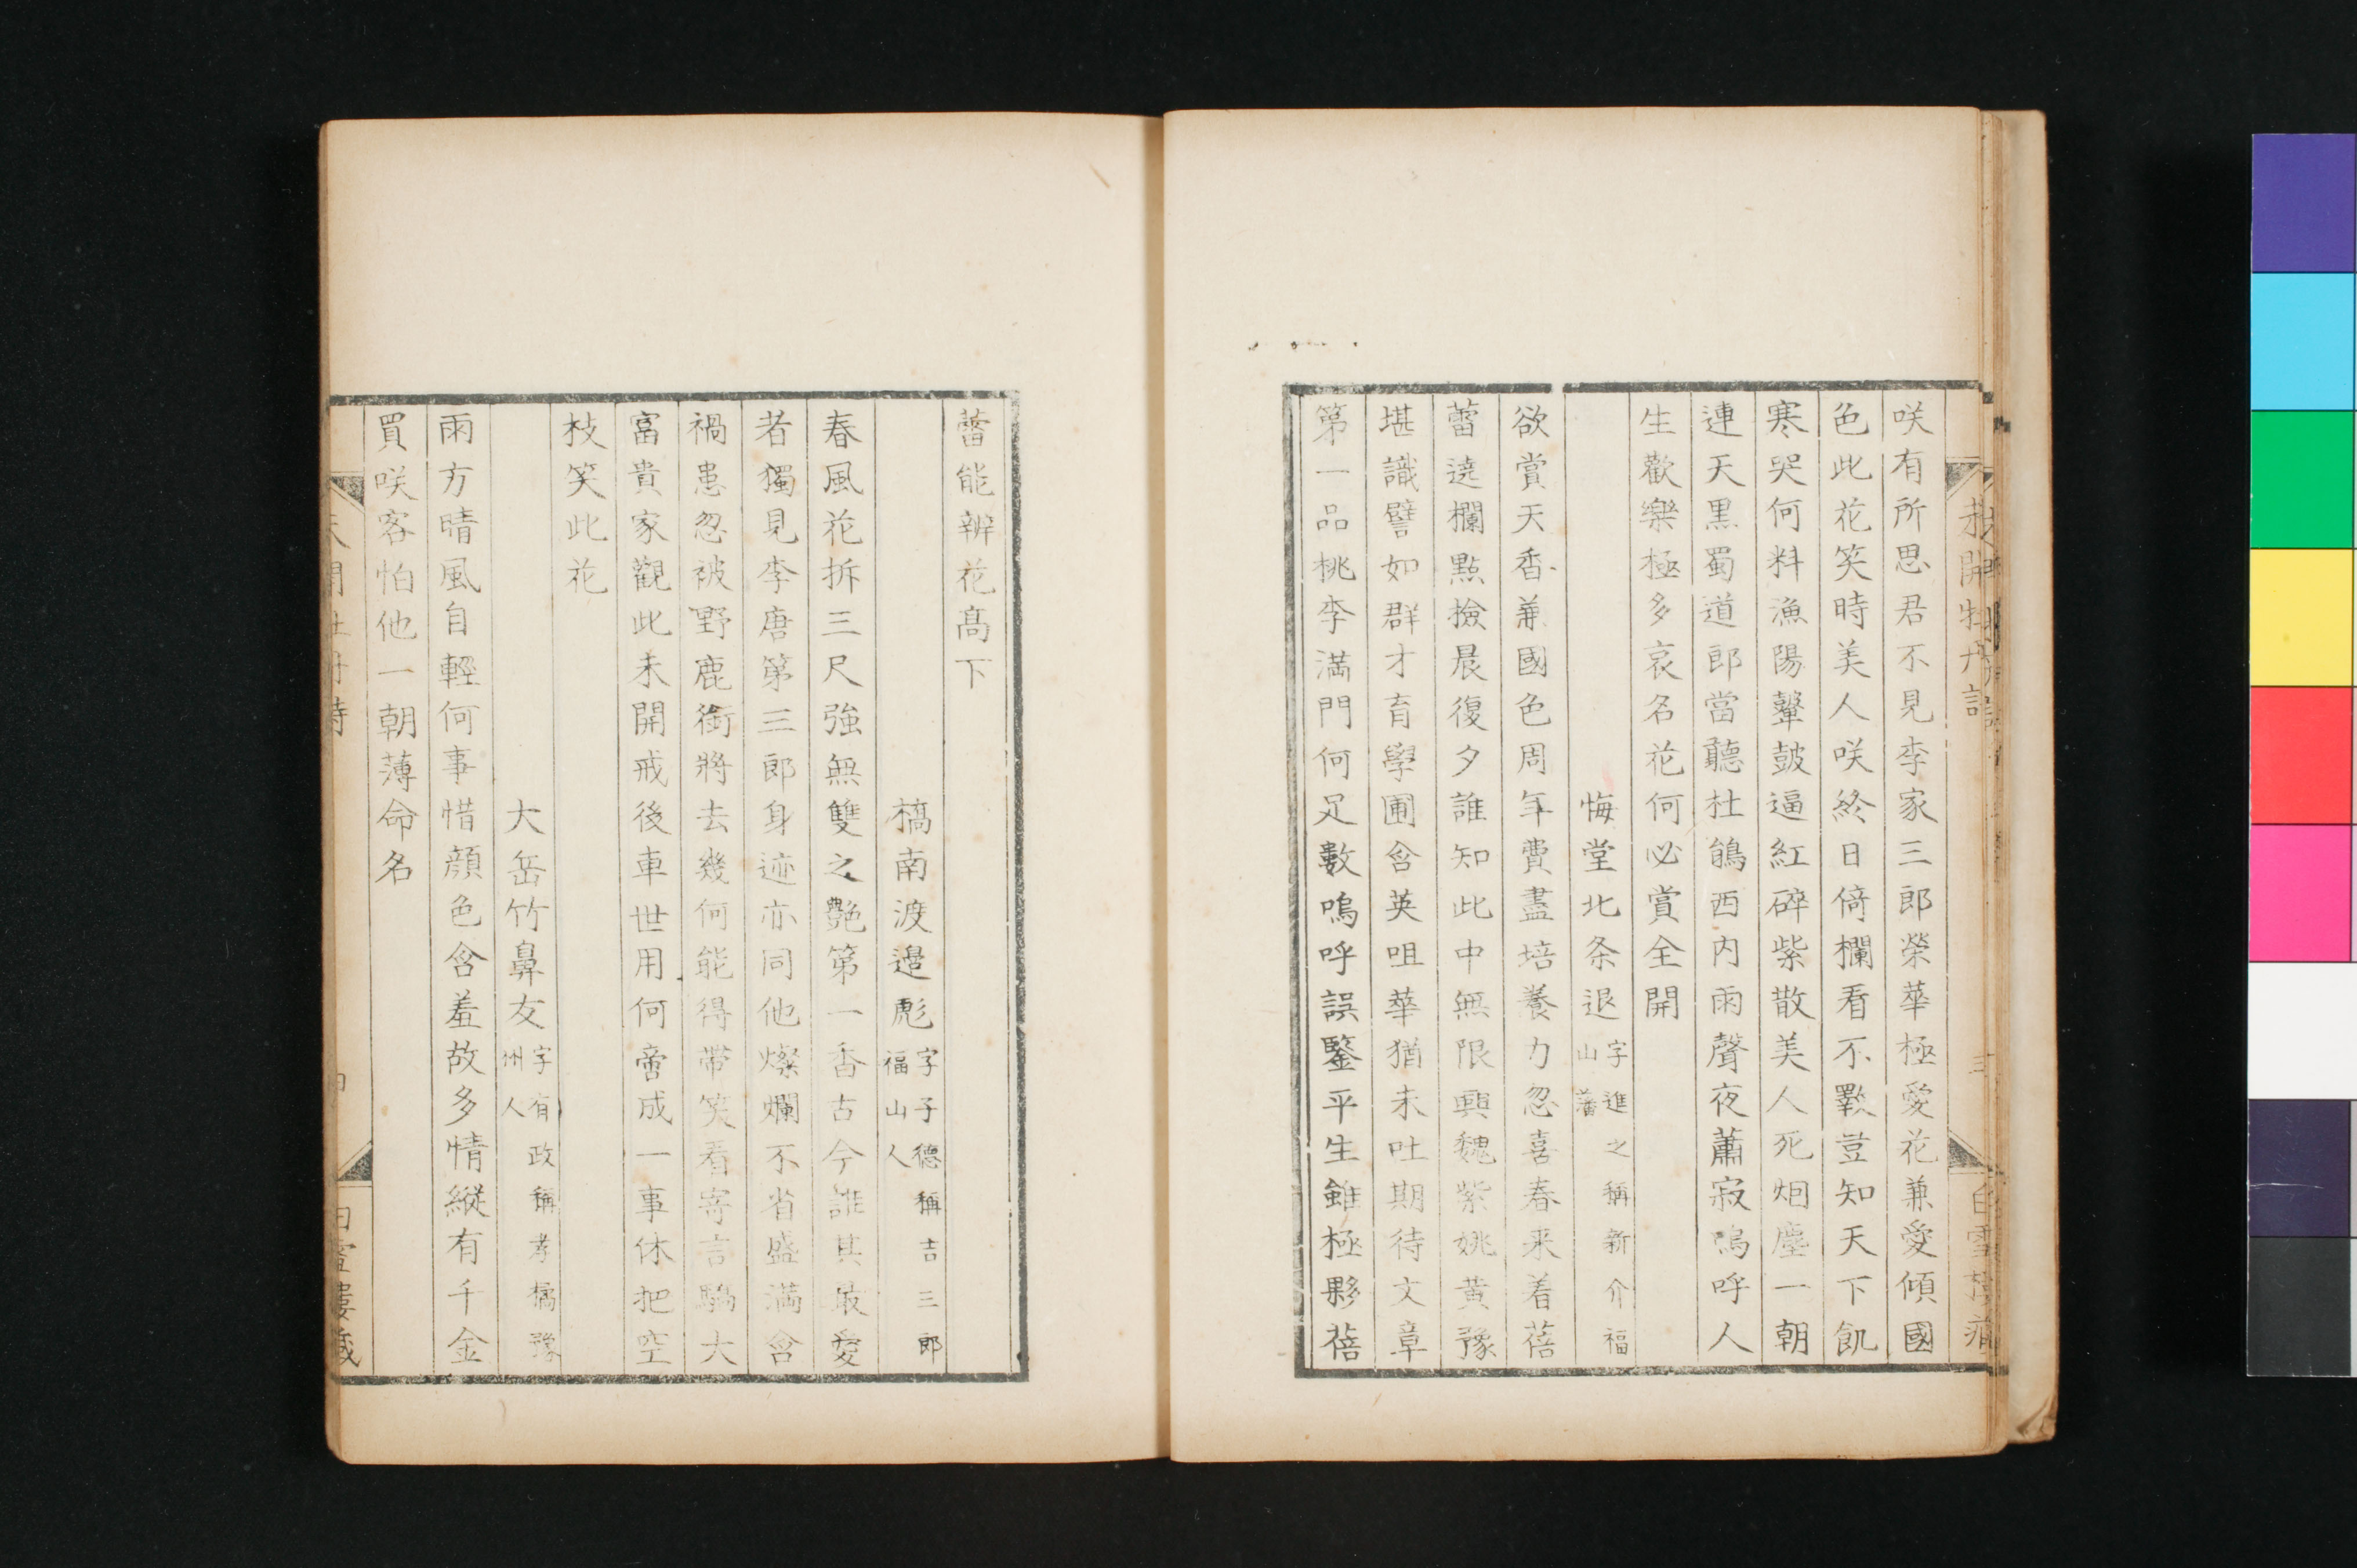 咲有所思君不見李家三郎榮華極愛花兼愛傾國
色此花笑時美人咲終日倚欄看不斁豈知天下飢
寒哭何料漁陽鼙鼓逼紅碎紫散美人死烟塵一朝
連天黒蜀道郎當聽杜鵑西内雨聲夜蕭寂嗚呼人
生歡樂極多哀名花何必賞全開
悔堂北条退 字進之稱新介福山藩
欲賞天香兼國色周年費盡培養力忽喜春来着蓓
蕾遶欄點撿晨復夕誰知此中無限興魏紫姚黄豫
堪識譬如群才育學圃含英咀華猶未吐期待文章
第一品桃李滿門何足數嗚呼誤鑒平生雖極夥蓓
蕾能辨花髙下
槗南渡邉彪 字子德稱吉三郎福山人
春風花拆三尺強無雙之艶第一香古今誰其最愛
者獨見李唐第三郎身迹亦同他燦爛不省盛満含
禍患忽被野鹿銜將去幾何能得帯笑看寄言驕大
富貴家觀此未開戒後車世用何啻成一事休把空
枝笑此花
大岳竹鼻友 字有政稱孝橘豫州人
雨方晴風自輕何事惜顔色含羞故多情縦有千金
買咲客怕他一朝薄命名